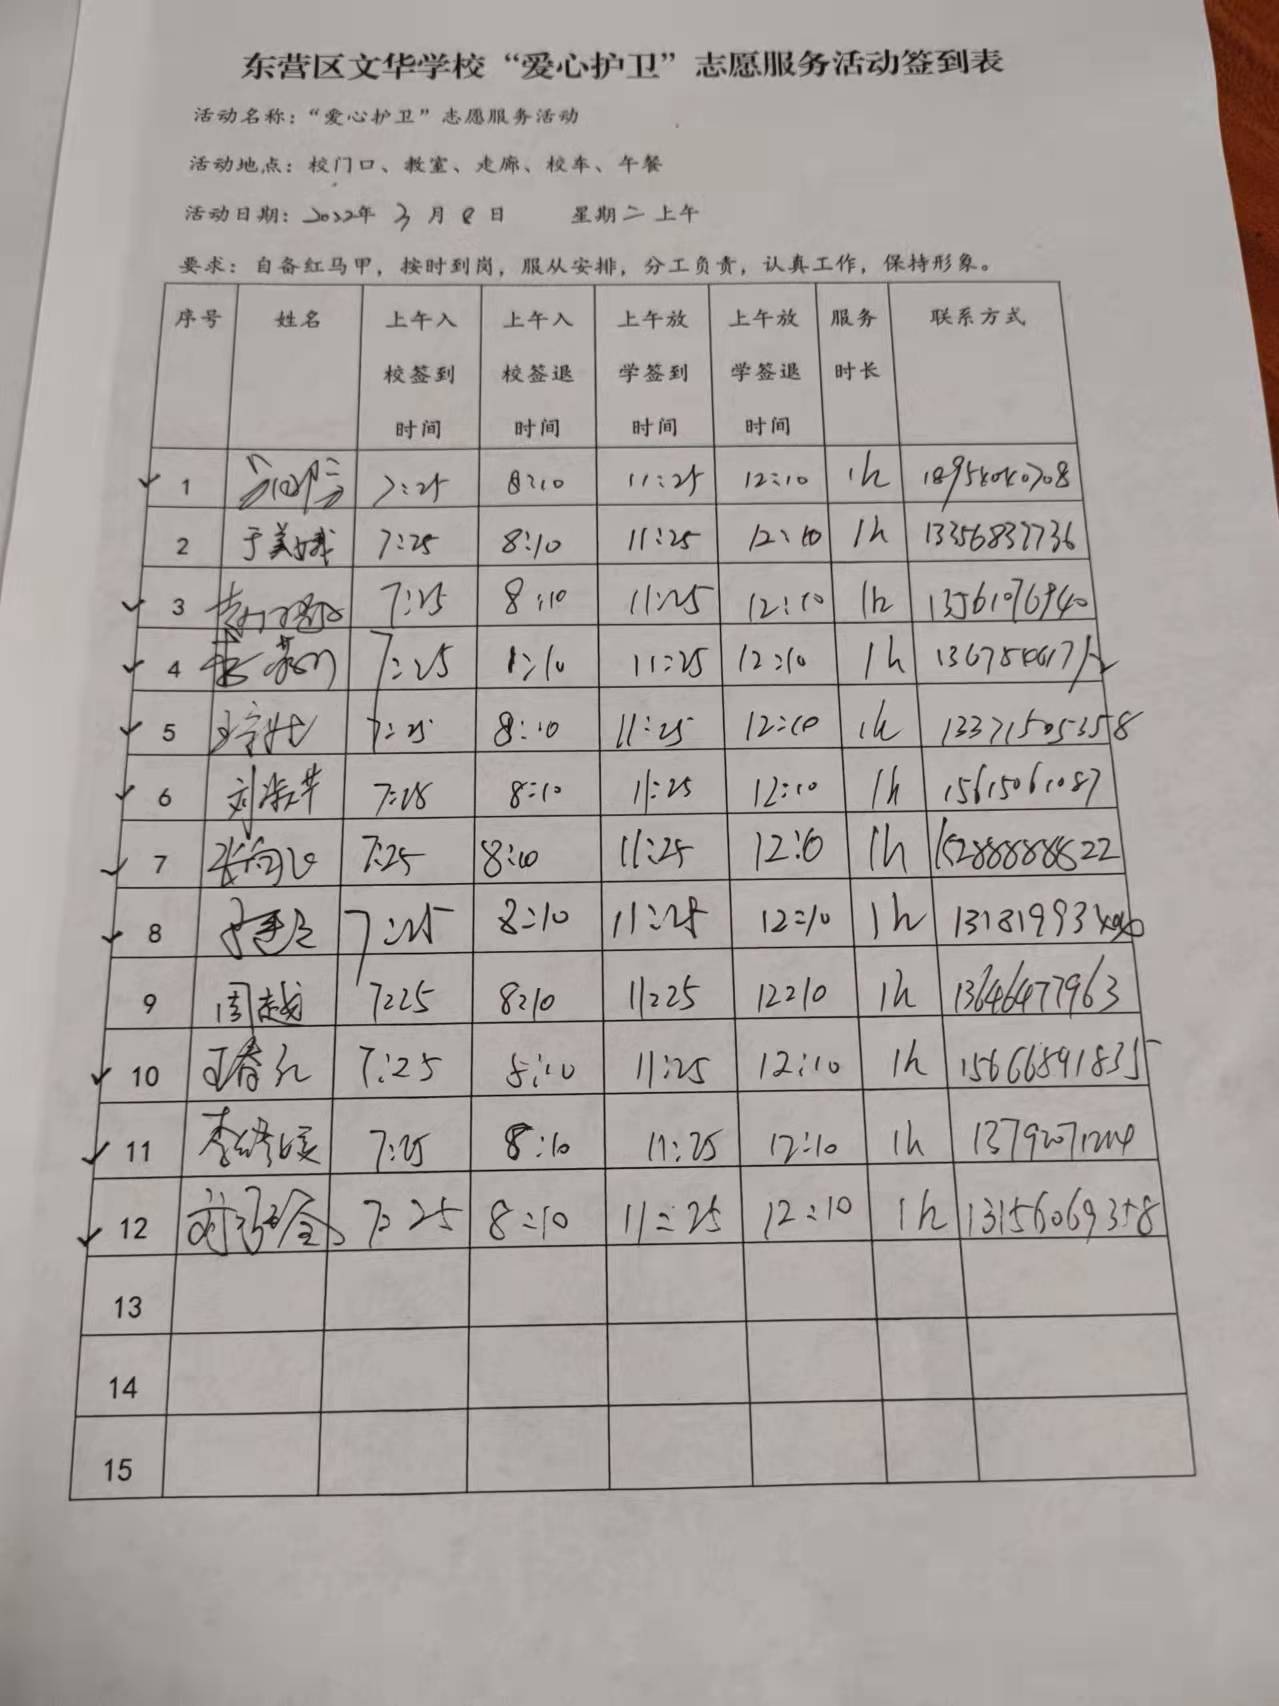 东营区文华学校“爱心护卫”志愿服务活动签到表
活动名称：“爱心护卫”志愿服务活动
活动地点：校门口、教室、走廊、校车、午餐
活动日期：2022年 3 月 8 日 星期二 上午
要求：自备红马甲，按时到岗，服从安排，分工负责，认真工作，保持形象。
序号 姓名 上午入校签到时间 上午入校签退时间 上午放学签到时间 上午放学签退时间 服务时长 联系方式
1 7:25 8:10 11:25 12:10 1h 18954040708
2 于美娥 7:25 8:10 11:25 12:10 1h 13356837736
3 7:25 8:10 11:25 12:10 1h 13561076940
4 7:25 8:10 11:25 12:10 1h
5 7:25 8:10 11:25 12:10 1h 13371505358
6 刘淑苹 7:25 8:10 11:25 12:10 1h 15615061087
7 7:25 8:10 11:25 12:10 1h 15288888522
8 7:25 8:10 11:25 12:10 1h
9 周越 7:25 8:10 11:25 12:10 1h 13646477963
10 王春红 7:25 8:10 11:25 12:10 1h 15666891835
11 7:25 8:10 11:25 12:10 1h 13792071204
12 7:25 8:10 11:25 12:10 1h 13156069358
13
14
15